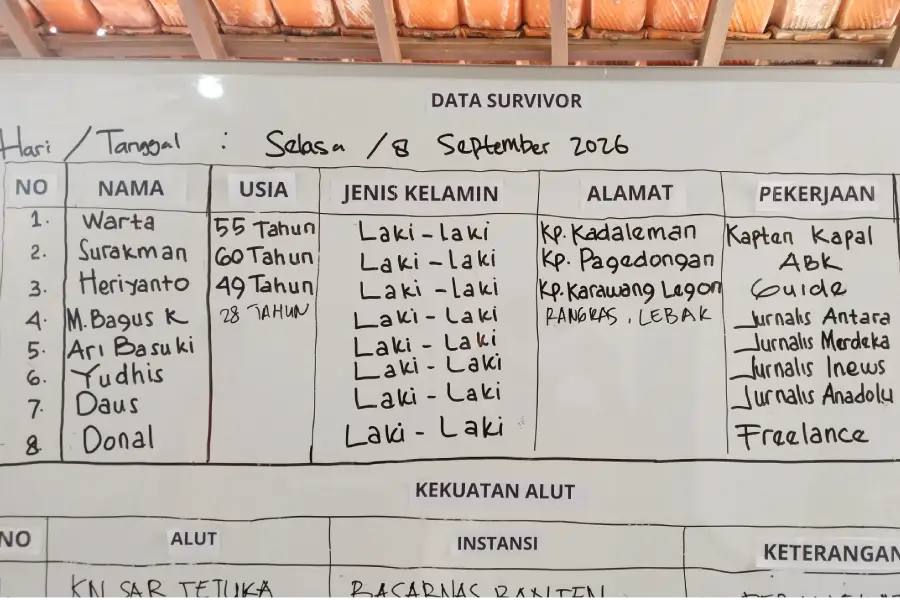 DATA SURVIVOR
Hari / Tanggal : Selasa / 8 September 2026
NO NAMA USIA JENIS KELAMIN ALAMAT PEKERJAAN
1. Warta 55 Tahun Laki-laki Kp. Kadaleman Kapten Kapal
2. Surakman 60 Tahun Laki-laki Kp. Pagedongan ABK
3. Heriyanto 49 Tahun Laki-laki Kp. Karawang Lagon Guide
4. M. Bagus K 28 TAHUN Laki-Laki RANGKAS, LEBAK Jurnalis Antara
5. Ari Basuki Laki-Laki Jurnalis Merdeka
6. Yudhis Laki-Laki Jurnalis Inews
7. Daus Laki-Laki Jurnalis Anadolu
8. Donal Laki-Laki Freelance
KEKUATAN ALUT
NO ALUT INSTANSI KETERANGAN
KN SAR TETUKA BASARNAS BANTEN